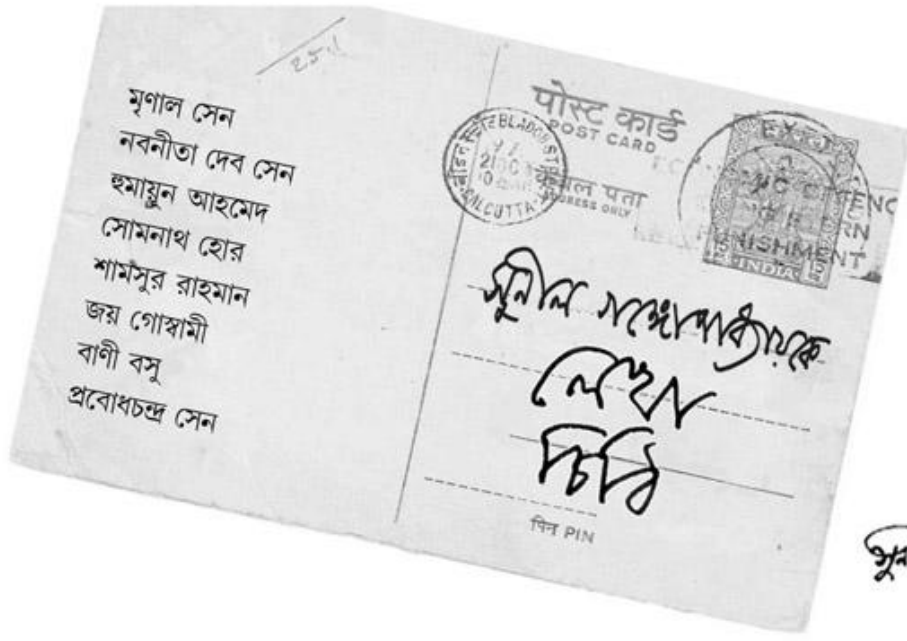 ২৫.১
মৃণাল সেন
নবনীতা দেব সেন
হুমায়ুন আহমেদ
সোমনাথ হোর
শামসুর রাহমান
জয় গোস্বামী
বাণী বসু
প্রবোধচন্দ্র সেন
पोस्ट कार्ड
POST CARD
केवल पता
ADDRESS ONLY
BLADON ST
CALCUTTA
PUNISHMENT
INDIA
সুনীল গঙ্গোপাধ্যায়কে
লেখা
চিঠি
पिन PIN